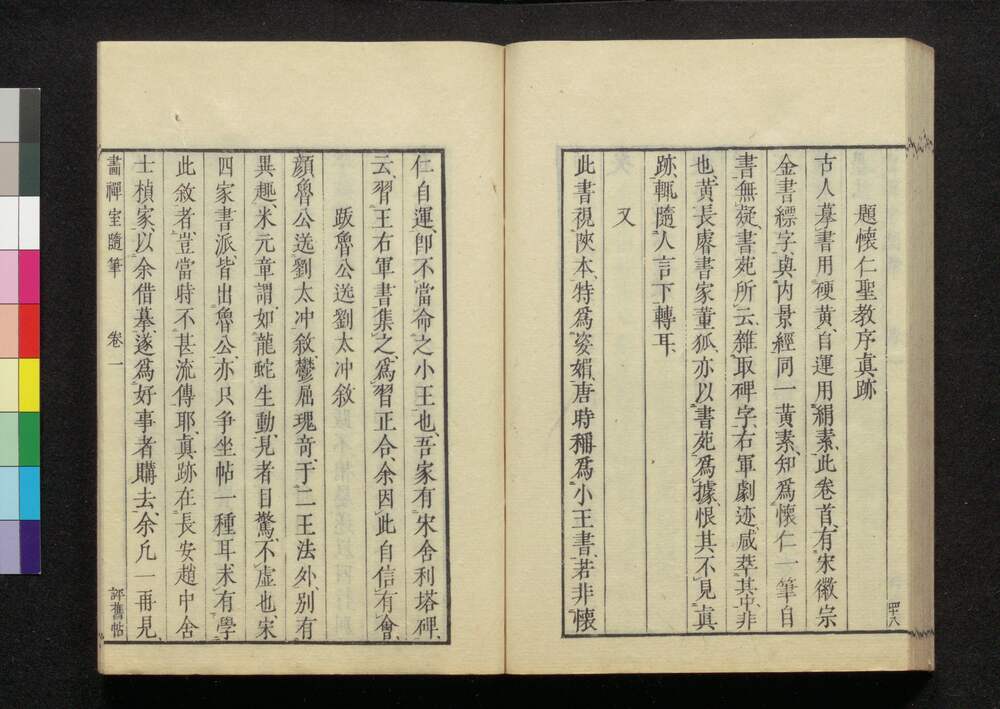 題懷仁聖教序真跡
古人摹書用硬黃、自運用絹素、此卷首、有宋徽宗
金書縹字、與內景經同一黃素、知為懷仁一筆自
書無疑、書苑所云、雜取碑字、右軍劇迹、咸萃其中、非
也、黃長睿書家董狐、亦以書苑為據、恨其不見真
跡、輒隨人言下轉耳、
又
此書視陝本、特為姿媚、唐時稱為小王書、若非懷
四十六
仁自運、卽不當命之小王也、吾家有宋舍利塔碑、
云、習王右軍書集之、為習正合、余因此自信有會、
跋魯公送劉太冲敘
顏魯公送劉太冲敘、鬱屈瑰奇、于二王法外、別有
異趣、米元章謂、如龍蛇生動、見者目驚、不虛也、宋
四家書派、皆出魯公、亦只爭坐帖一種耳、未有學
此敘者、豈當時不甚流傳耶、真跡在長安趙中舍
士楨家、以余借摹、遂為好事者購去、余凡一再見、
畫禪室隨筆 卷一 評舊帖